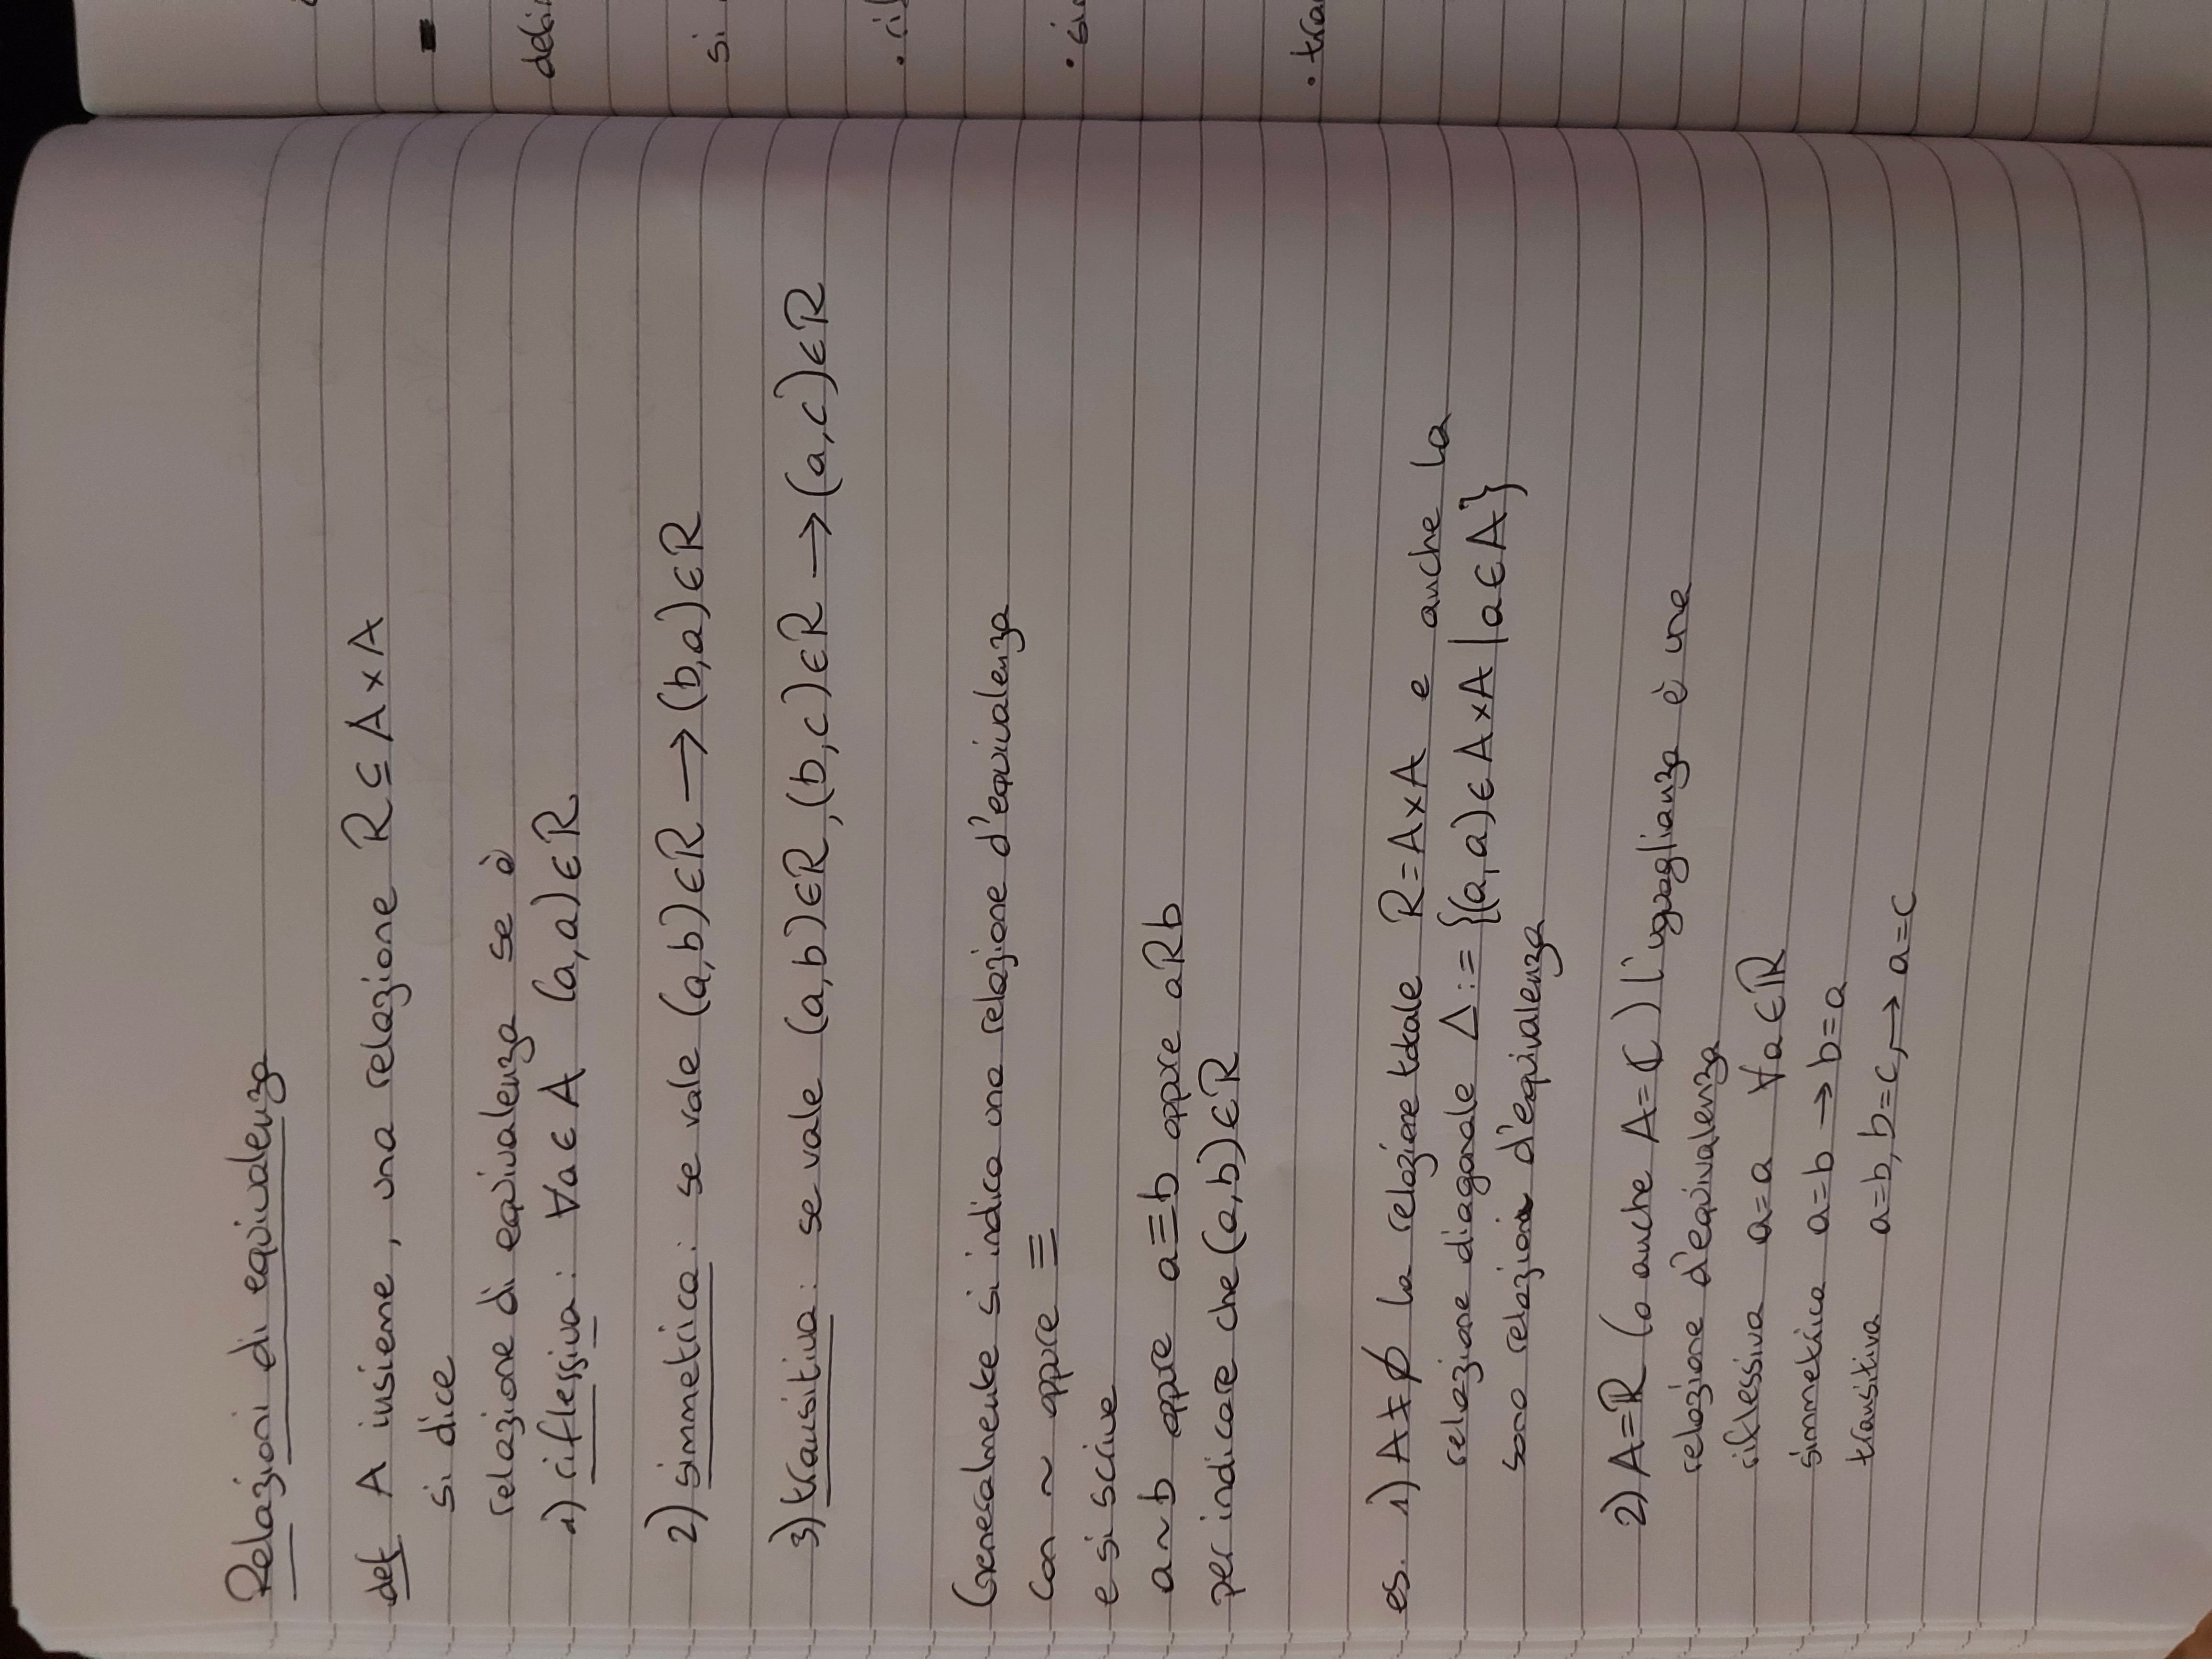 Relazioni di equivalenza
def A insieme, una relazione R ⊆ A × A
si dice
relazione di equivalenza se è
1) riflessiva: ∀a ∈ A (a,a) ∈ R
2) simmetrica: se vale (a,b) ∈ R → (b,a) ∈ R
3) transitiva: se vale (a,b) ∈ R, (b,c) ∈ R → (a,c) ∈ R
Generalmente si indica una relazione d'equivalenza
con ~ oppure ≡
e si scrive
a ~ b oppure a ≡ b oppure aRb
per indicare che (a,b) ∈ R
es. 1) A ≠ ∅ la relazione totale R = A × A e anche la
relazione diagonale Δ := {(a,a) ∈ A × A | a ∈ A}
sono relazioni d'equivalenza
2) A = ℝ (o anche A = ℂ) l'uguaglianza è una
relazione d'equivalenza
riflessiva a = a ∀a ∈ ℝ
simmetrica a = b → b = a
transitiva a = b, b = c, → a = c
si